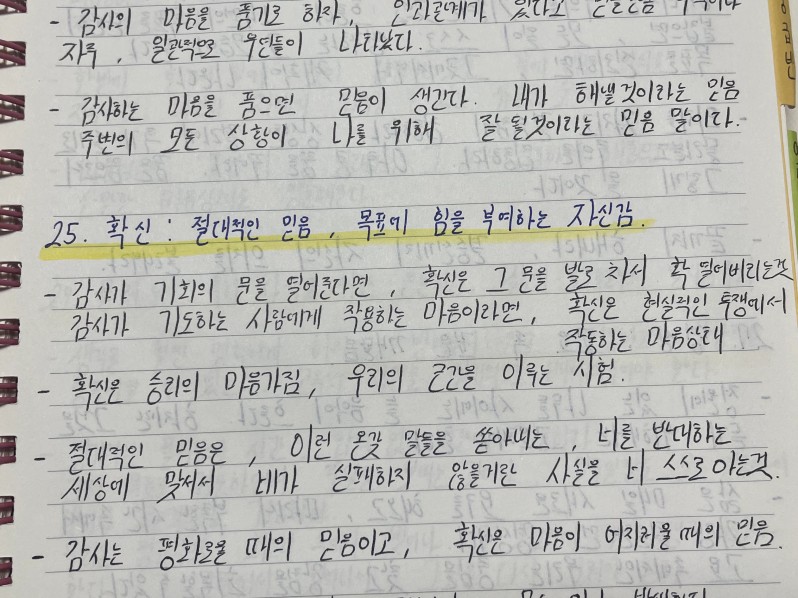 - 감사의 마음을 품기로 하자, 인과관계가 있다고
자주, 일관적으로 우연들이 나타났다.
- 감사하는 마음을 품으면 믿음이 생긴다. 내가 해낼것이라는 믿음
주변의 모든 상황이 나를 위해 잘 될것이라는 믿음 말이다.
25. 확신 : 절대적인 믿음, 목표에 힘을 부여하는 자신감.
- 감사가 기회의 문을 열어준다면, 확신은 그 문을 발로 차서 확 열어버리는것
감사가 기도하는 사람에게 작용하는 마음이라면, 확신은 현실적인 투쟁에서
작동하는 마음상태.
- 확신은 승리의 마음가짐, 우리의 근간을 이루는 시험.
- 절대적인 믿음은, 이런 온갖 말들을 쏟아내는, 너를 반대하는
세상에 맞서서 네가 실패하지 않을거란 사실을 너 스스로 아는것.
- 감사는 평화로울 때의 믿음이고, 확신은 마음이 어지러울 때의 믿음.